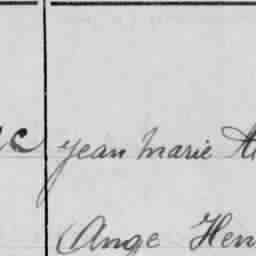 Jean Marie
Ange Hen